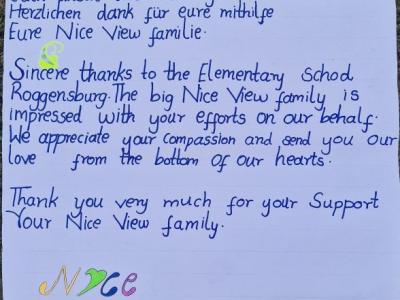 Herzlichen dank für eure mithilfe
Eure Nice View familie.
Sincere thanks to the Elementary School
Roggensburg. The big Nice View family is
impressed with your efforts on our behalf.
We appreciate your compassion and send you our
love from the bottom of our hearts.
Thank you very much for your Support
Your Nice View family.